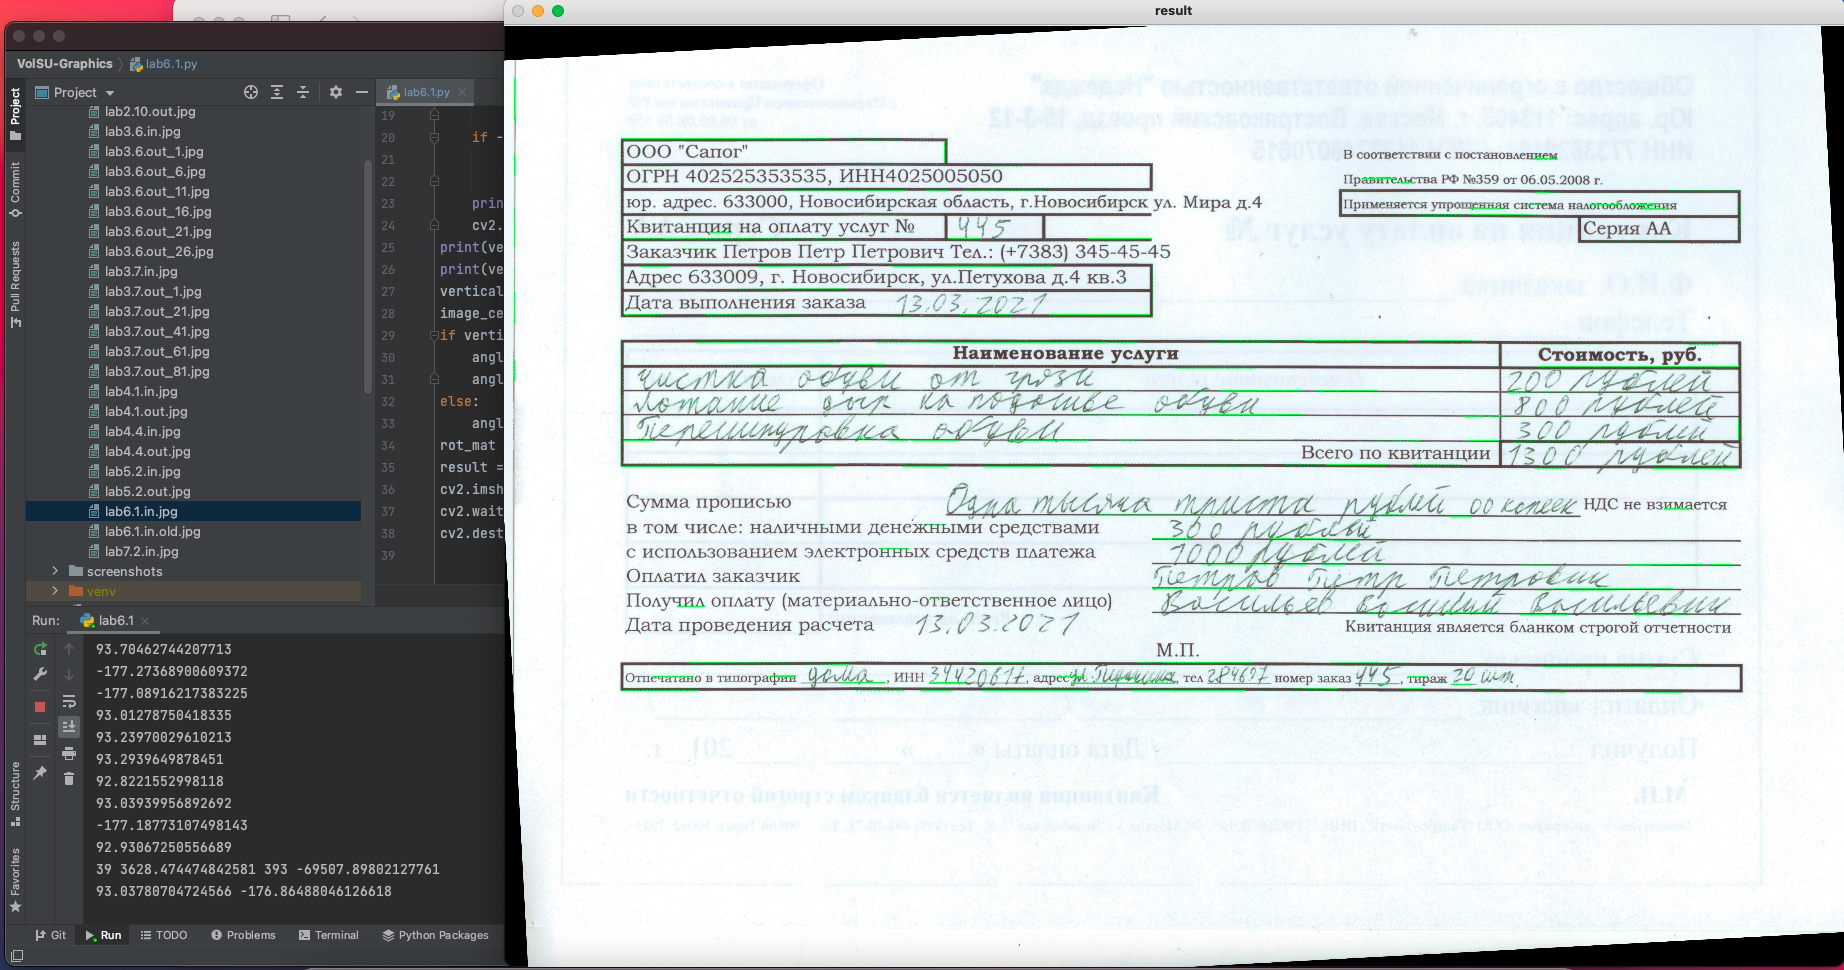 result
VolSU-Graphics
lab6.1.py
Project
Project
lab6.1.py
lab2.10.out.jpg
lab3.6.in.jpg
lab3.6.out_1.jpg
lab3.6.out_6.jpg
lab3.6.out_11.jpg
lab3.6.out_16.jpg
lab3.6.out_21.jpg
lab3.6.out_26.jpg
lab3.7.in.jpg
lab3.7.out_1.jpg
lab3.7.out_21.jpg
lab3.7.out_41.jpg
lab3.7.out_61.jpg
lab3.7.out_81.jpg
lab4.1.in.jpg
lab4.1.out.jpg
lab4.4.in.jpg
lab4.4.out.jpg
lab5.2.in.jpg
lab5.2.out.jpg
lab6.1.in.jpg
lab6.1.in.old.jpg
lab7.2.in.jpg
screenshots
venv
Commit
Pull Requests
Structure
Favorites
19
20 if -
21
22
23 prin
24 cv2.
25 print(ve
26 print(ve
27 vertical
28 image_ce
29 if verti
30 angl
31 angl
32 else:
33 angl
34 rot_mat
35 result =
36 cv2.imsh
37 cv2.wait
38 cv2.dest
39
Run: lab6.1
93.70462744207713
-177.27368900609372
-177.08916217383225
93.01278750418335
93.23970029610213
93.2939649878451
92.8221552998118
93.03939956892692
-177.18773107498143
92.93067250556689
39 3628.474474842581 393 -69507.89802127761
93.03780704724566 -176.86488046126618
Git Run TODO Problems Terminal Python Packages
ООО "Сапог"
ОГРН 402525353535, ИНН4025005050
юр. адрес. 633000, Новосибирская область, г.Новосибирск ул. Мира д.4
Квитанция на оплату услуг № 445
Заказчик Петров Петр Петрович Тел.: (+7383) 345-45-45
Адрес 633009, г. Новосибирск, ул.Петухова д.4 кв.3
Дата выполнения заказа 13.03.2021
В соответствии с постановлением
Правительства РФ №359 от 06.05.2008 г.
Применяется упрощенная система налогообложения
Серия АА
Наименование услуги Стоимость, руб.
Чистка обуви от грязи 200 рублей
Латание дыр на подошве обуви 800 рублей
Перешнуровка обуви 300 рублей
Всего по квитанции 1300 рублей
Сумма прописью Одна тысяча триста рублей 00 копеек НДС не взимается
в том числе: наличными денежными средствами 300 рублей
с использованием электронных средств платежа 1000 рублей
Оплатил заказчик Петров Петр Петрович
Получил оплату (материально-ответственное лицо) Васильев Василий Васильевич
Дата проведения расчета 13.03.2021
Квитанция является бланком строгой отчетности
М.П.
Отпечатано в типографии дома, ИНН 34420617, адрес ул. тел 284697 номер заказ 445, тираж 20 шт.